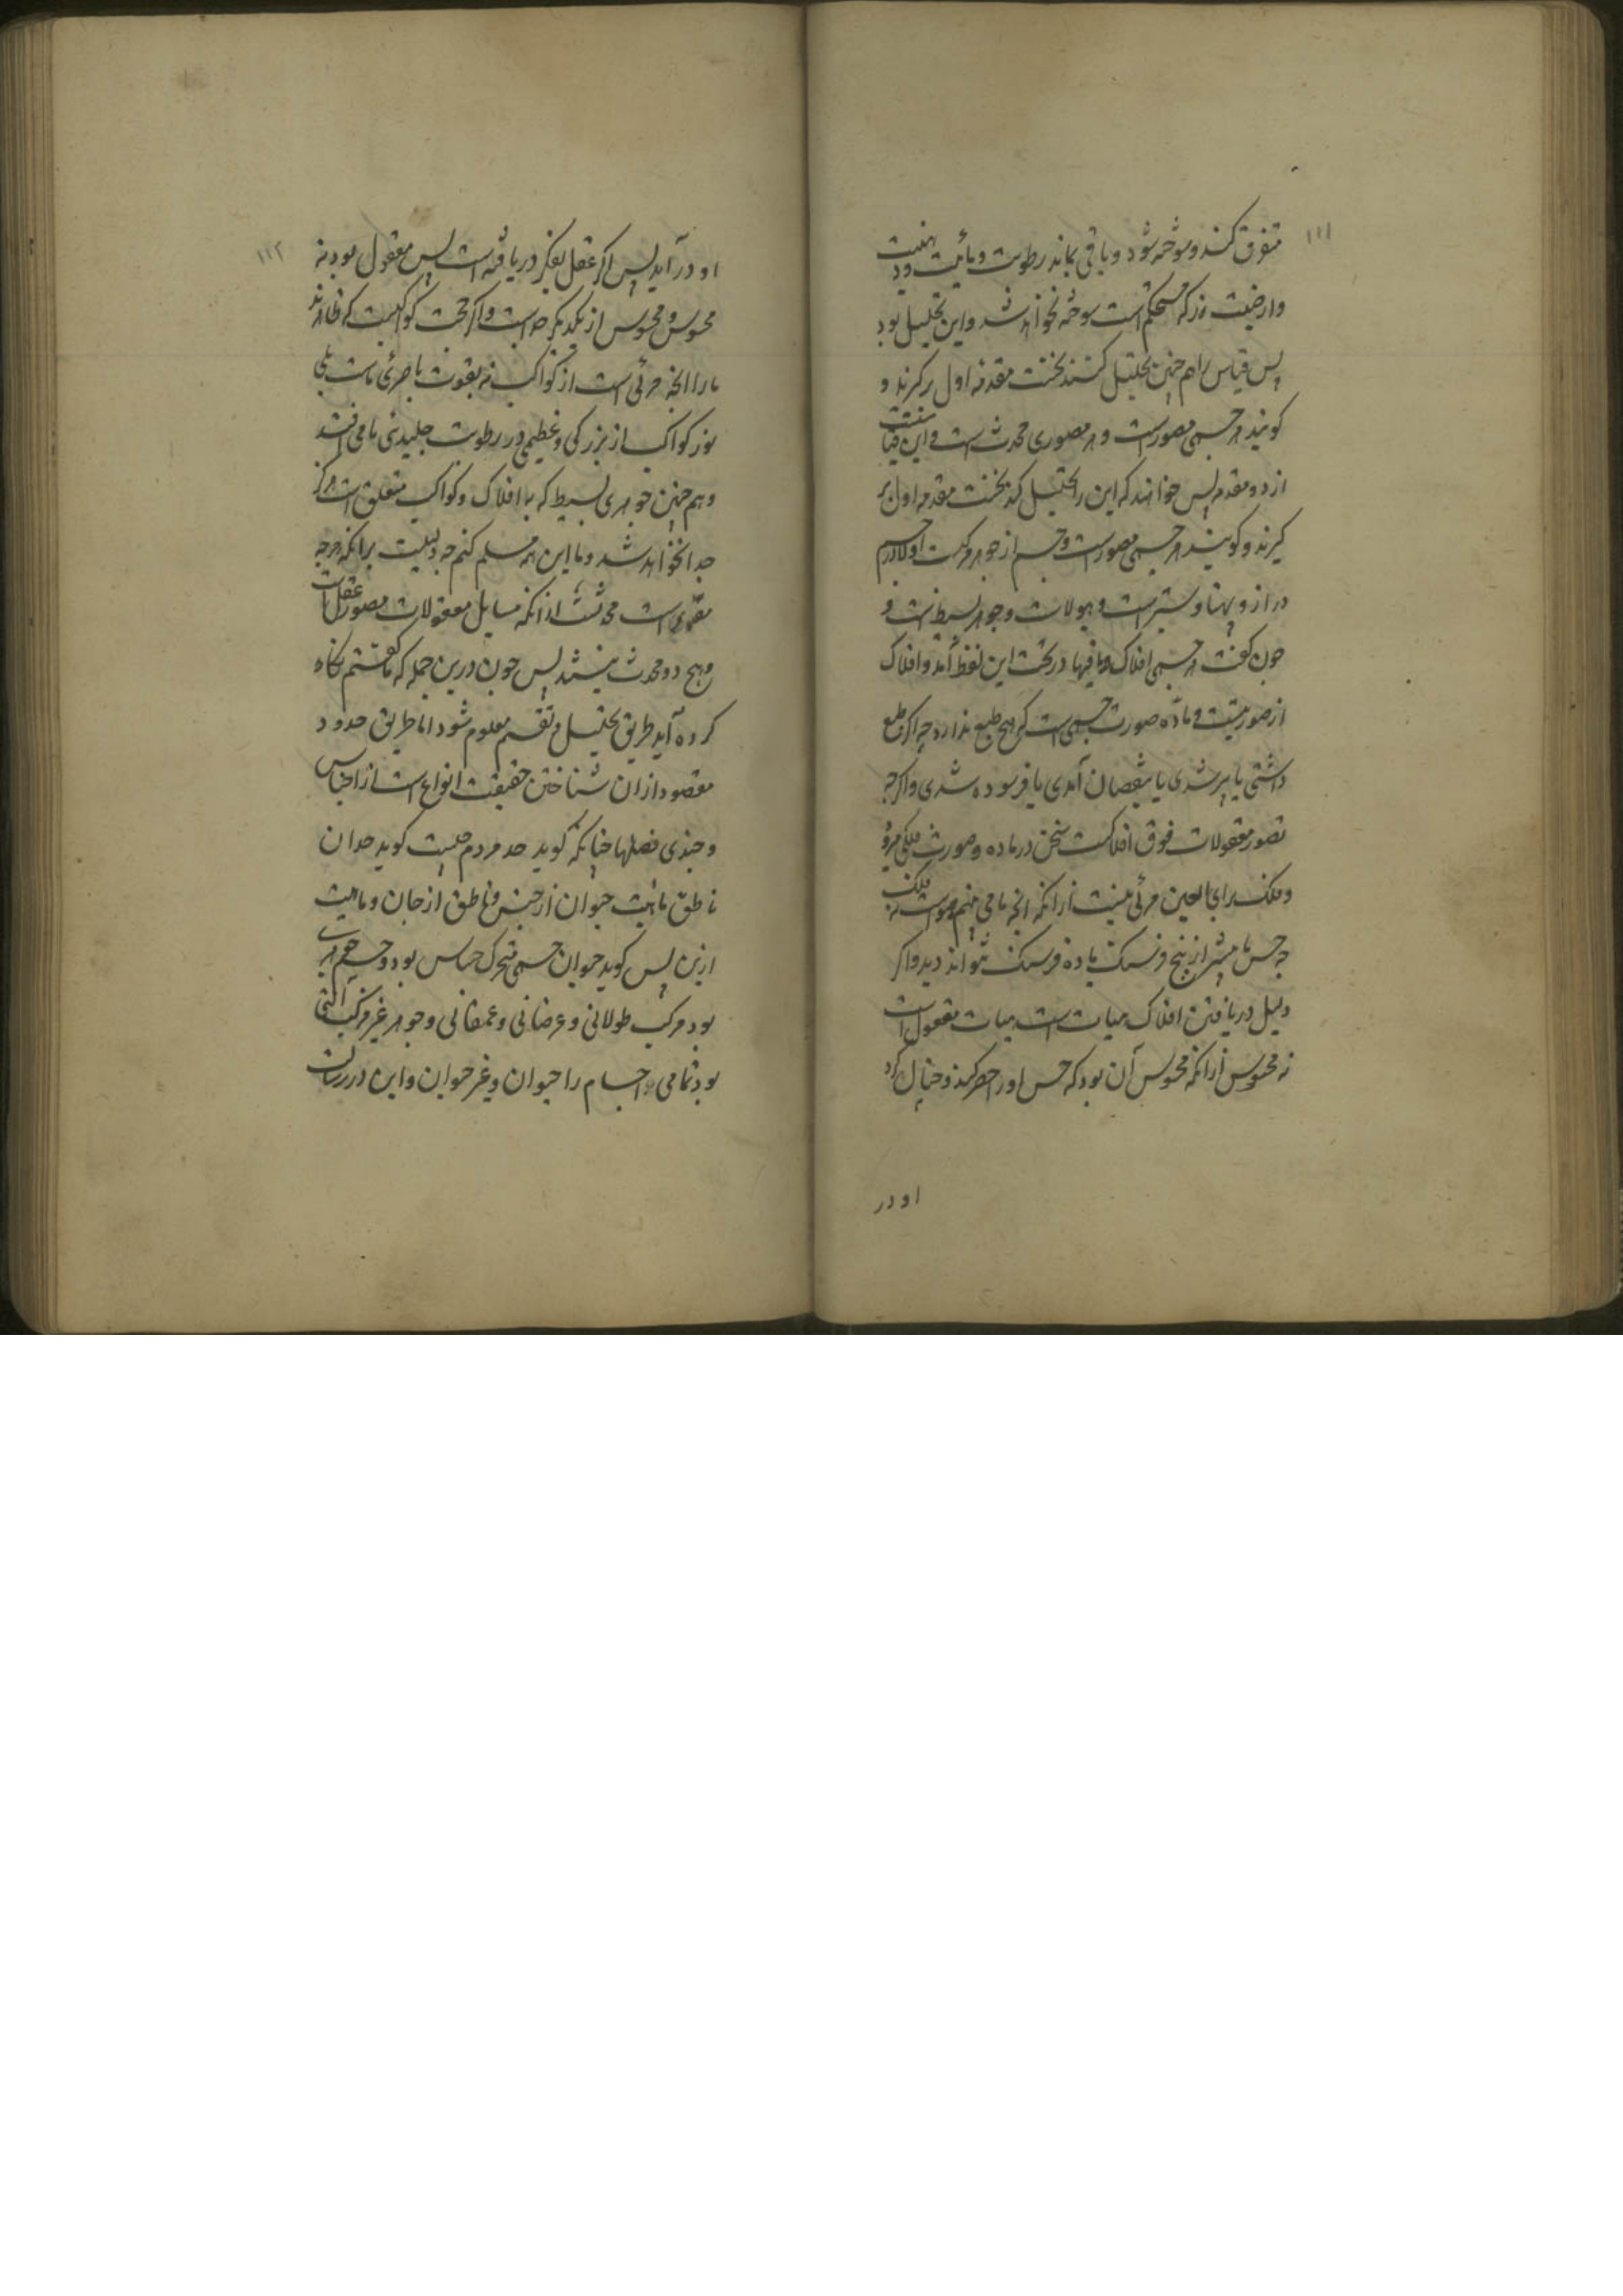 ۱۱۱
متفرق کنند و سوخته شود و باقی بماند رطوبت و مائیت و دهنیت
وارضیت زرکه مستحکم است سوخته نخواهد شد و این تحلیل بود
پس قیاس را هم چنین تحلیل کنند نخست مقدمه اول برگیرند و
کویند هر جسمی مصورست و هر مصوری محدث است و این قیاس
از دو مقدمه پس خواهند که این را تحلیل کنند نخست مقدمه اول بر
کیرند و کویند هر جسمی مصورست و جسم از جوهر مرکبست اولا در جسم
دراز و پهنا و ستبر است و هیولاست و جوهر بسیط است و
چون کفت هر جسمی افلاک و مافیها در تحت این لفظ آمد و افلاک
از صورتیست و ماده صورت جسمی است که هیچ طبع ندارد چه اگر طبع
داشتی یا پیر شدی یا بنقصان آمدی یا فرسوده شدی و اگرچه
تصور معقولات فوق افلاکست سخن در ماده و صورت فلکی
و فلک برای العین مرئی نیست ازانکه انچه ما می بینیم
چه حس ما بیشتر از پنج فرسنک یا ده فرسنک نتواند دید و اگر
دلیل دریافتن افلاک هیات است هیات معقول است
نه محسوس ازانکه محسوس آن بود که حس او را حصر کند و خیال کرد
او در
۱۱۲
او در آید پس اگر عقل بفکر دریافته است پس معقول بود نه
محسوس و محسوس از یکدیگر جداست و اگر حجت کواکبست که ظاهرند
مارا انچه مرئی است از کواکب نه بقوت باصرهٔ ماست بلی
نور کواکب از بزرکی و عظیمی در رطوبت جلیدی ما می افتد
و هم چنین جوهری بسیط که به افلاک و کواکب متعلق است هرکز
جدا نخواهد شد و ما این همه مسلم کنیم چه دلیلست برانکه هرچه
است محدثست ازانکه مسایل معقولات مصور عقل است
و هیچ دو محدث نیستند پس چون درین جمله که ما کفتیم نکاه
کرده آید طریق تحلیل و تقسیم معلوم شود اما طریق حدود
مقصود ازان شناختن حقیقت انواع است از اجناس
و چندی فصلها چنانکه کوید حد مردم چیست کوید حیوان
ناطق مائیت حیوان از جنس و ناطق از جان و ماهیت
ازین پس کوید حیوان جسمی متحرک حساس بود و جسم جوهری
بود مرکب طولانی و عرضانی و عمقانی و جوهر غیر مرکب
بود تمامی اجسام را حیوان و غیر حیوان و این در رسالت